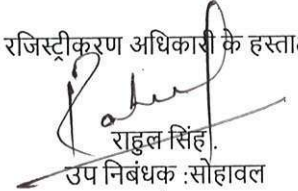 रजिस्ट्रीकरण अधिकारी के
राहुल सिंह .
उप निबंधक :सोहावल